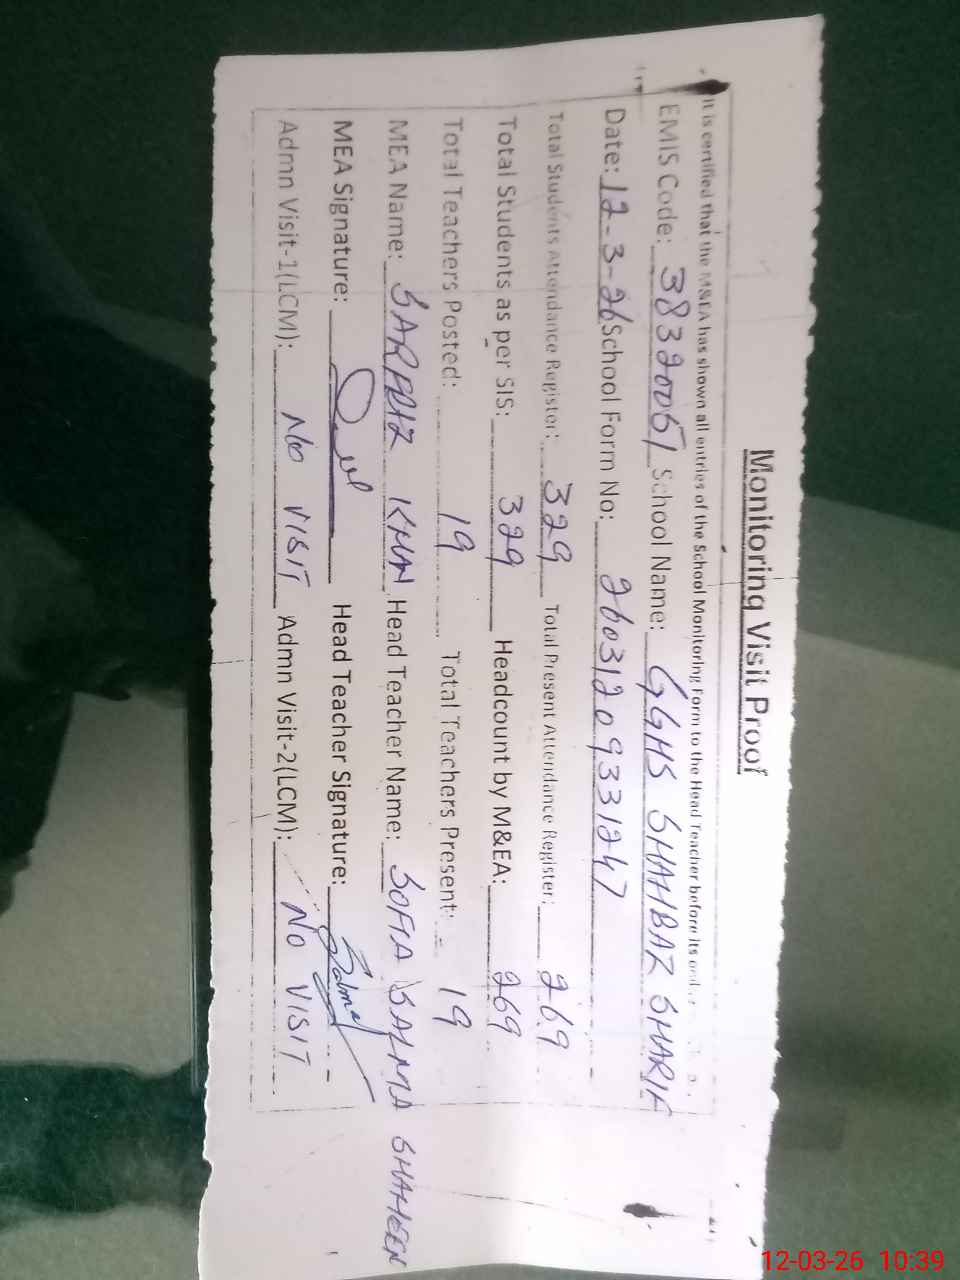 Monitoring Visit Proof
It is certified that the M&EA has shown all entries of the School Monitoring Form to the Head Teacher before its
EMIS Code: 38320051 School Name: GGHS SHAHBAZ SHARIF
Date: 12-3-26 School Form No: 260312093312 47
Total Students Attendance Register: 329 Total Present Attendance Register: 269
Total Students as per SIS: 329 Headcount by M&EA: 269
Total Teachers Posted: 19 Total Teachers Present: 19
MEA Name: KHAN Head Teacher Name: SOFIA SALMA SHAHEEN
MEA Signature: Head Teacher Signature: Salma
Admn Visit-1(LCM): No VISIT Admn Visit-2(LCM): No VISIT
12-03-26 10:39